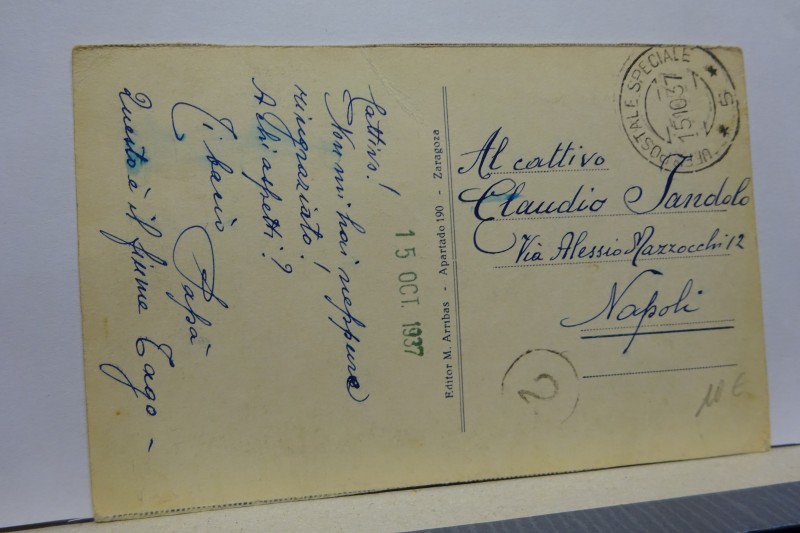 Cattivo!
Non mi hai neppure
ringraziato!
A chi aspetti?
Ti bacio Papà
Questo è il fiume Tago -
15 OCT. 1937
Editor M. Arribas - Apartado 190 - Zaragoza
UFF. POSTALE SPECIALE * 5 *
15 10 37
Al cattivo
Claudio Jandolo
Via Alessio Mazzocchi 12
Napoli
2
10 €